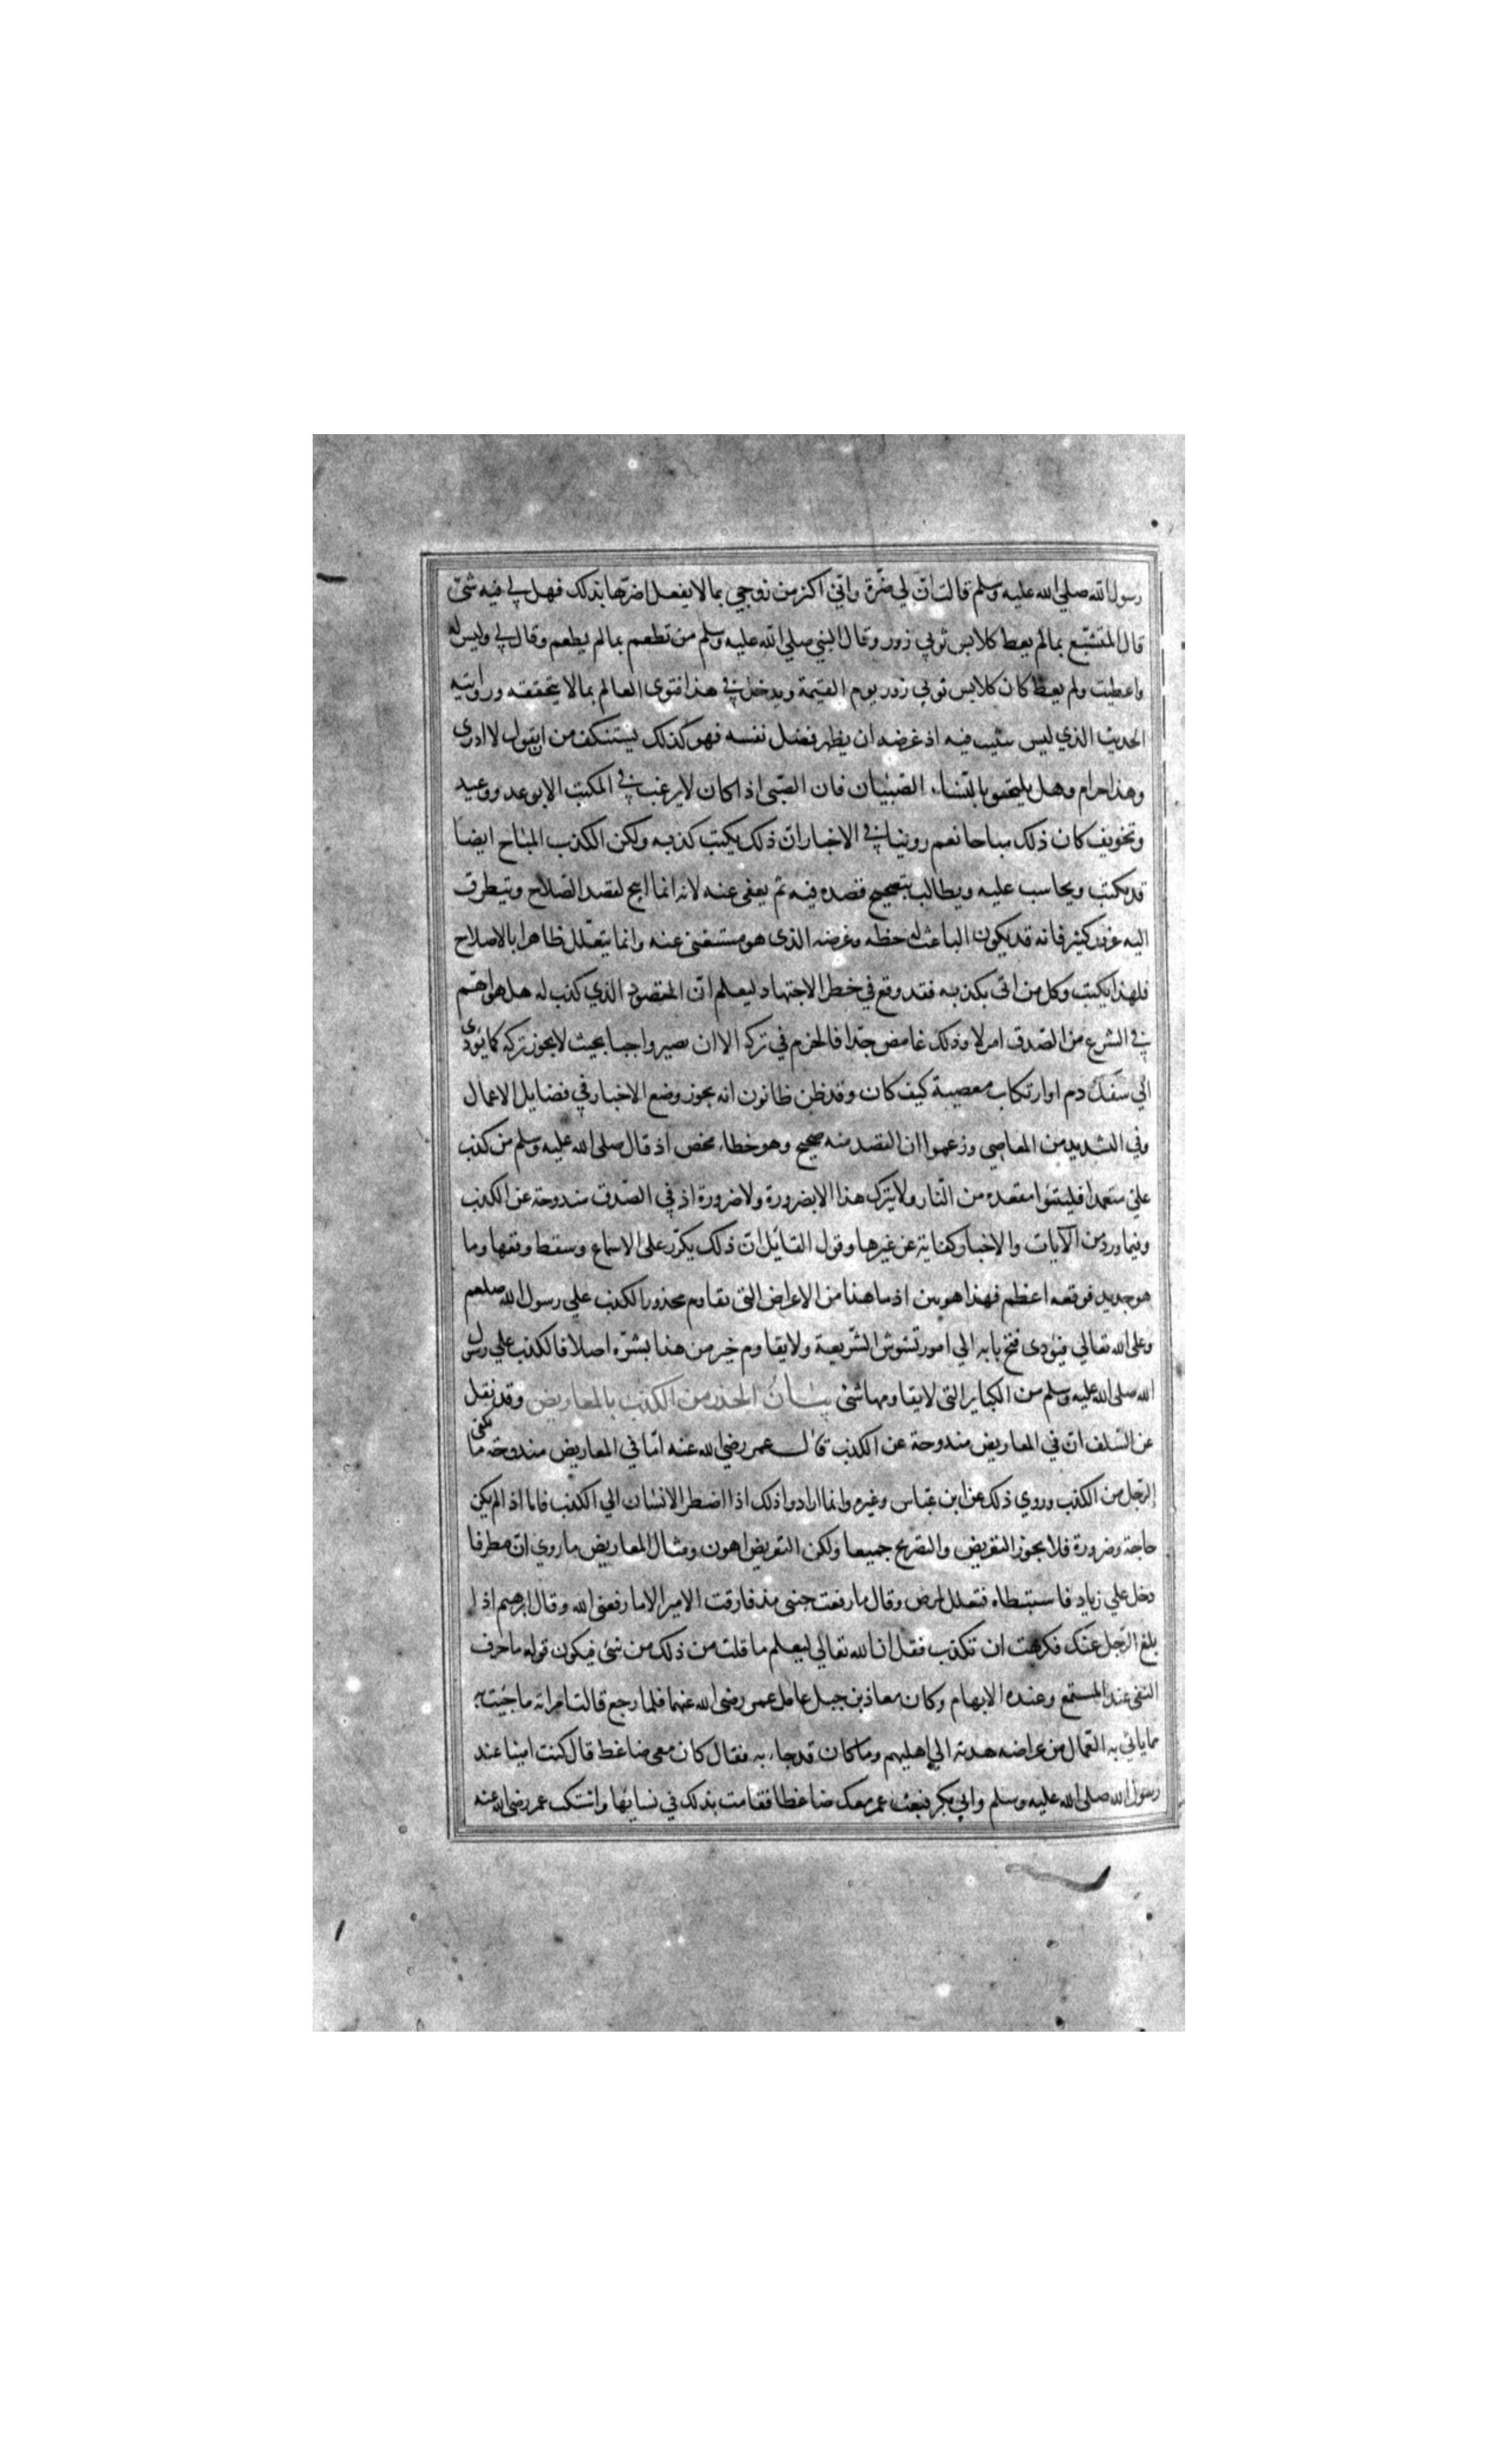 رسول الله صلي الله عليه وسلم قالت انّ لي ضرّة واني اكثر من زوجي بما لا يفعل اضرّها بذلك فهل لي فيه شئ
قال المتشبّع بمالم يعط كلابس ثوبي زور وقال النبي صلي الله عليه وسلم من تطعم بمالم يطعم وقال لي وليس له
واعطيت ولم يعط كان كلابس ثوبي زور يوم القيمة ويدخل في هذا فتوى العالم بما لا يتحققه وروايته
الحديث الذي ليس يثبت فيه اذ غرضه ان يظهر فضل نفسه فهو كذلك يستنكف من ان يقول لا ادري
وهذا حرام وهل يلتحق بالنساء الصبيان فان الصّبى اذا كان لا يرغب في المكتب الا بوعد ووعيد
وتخويف كان ذلك مباحا نعم روينا في الاخبار ان ذلك يكتب كذبه ولكن الكذب المباح ايضا
قد يكتب ويحاسب عليه ويطالب بتصحيح قصده فيه ثم يعفى عنه لانه انما ابيح لقصد الصّلاح ويتطرق
اليه غرور كثير فانه قد يكون الباعث له حظه وغرضه الذى هو مستغنى عنه وانما يتعلل ظاهرا بالاصلاح
فلهذا يكتب وكل من اتى بكذبه فقد وقع في خطر الاجتهاد ليعلم انّ المقصود الذي كذب له هل هو اهم
في الشرع من الصّدق ام لا وذلك غامض جدّا فالحزم في تركه الا ان يصير واجبا بحيث لا يجوز تركه كما يؤدى
الي سفك دم او ارتكاب معصية كيف كان وقد ظن ظانون انه يجوز وضع الاخبار في فضايل الاعمال
وفي التشديد من المعاصي وزعموا ان القصد منه صحيح وهو خطاء محض اذ قال صلى الله عليه وسلم من كذب
علىّ متعمدا فليتبوّا مقعده من النّار ولا يترك هذا الا بضرورة ولا ضرورة اذ في الصّدق مندوحة عن الكذب
وفيما ورد من الآيات والاخبار كفاية عن غيرها وقول القايل انّ ذلك يكرّر على الاسماع وسقط وقعها وما
هو جديد فوقعه اعظم فهذا هوس اذ ما هذا من الاغراض التى تقاوم محذور الكذب علي رسول الله صلعم
وعلى الله تعالي فيؤدى فتح بابه الي امور تشوش الشّريعة ولا يقاوم خير من هذا بشرّه اصلا فالكذب علي رسول
الله صلى الله عليه وسلم من الكباير التى لا يقاومها شئ بيان الحذر من الكذب بالمعاريض وقد نقل
عن السّلف انّ في المعاريض مندوحة عن الكذب قال عمر رضي الله عنه امّا في المعاريض مندوحة ما يكفى
الرّجل من الكذب وروي ذلك عن ابن عبّاس وغيره وانما ارادوا ذلك اذا اضطر الانسان الي الكذب فاما اذ الم يكن
حاجة وضرورة فلا يجوز التعريض والتصريح جميعا ولكن التعريض اهون ومثال المعاريض ما روي انّ مطرفا
دخل علي زياد فاستبطاه فتعلل بمرض وقال ما رفعت جنبى مذ فارقت الامير الا ما رفعنى الله وقال ابرهيم اذا
بلغ الرّجل عنك فكرهت ان تكذب فقل ان الله تعالي ليعلم ما قلت من ذلك من شئ فيكون قوله ما حرف
النفى عند المستمع وعنده الابهام وكان معاذ بن جبل عامل عمر رضى الله عنهما فلما رجع قالت امراته ما جئت به
مما ياتي به العمّال من عراضه هدية الي اهليهم وما كان قد جاء به فقال كان معى ضاغط قال كنت امينا عند
رسول الله صلى الله عليه وسلم وابي بكر فبعث عمر معك ضاغطا فقامت بذلك في نسايها واشتكت عمر رضى الله عنه